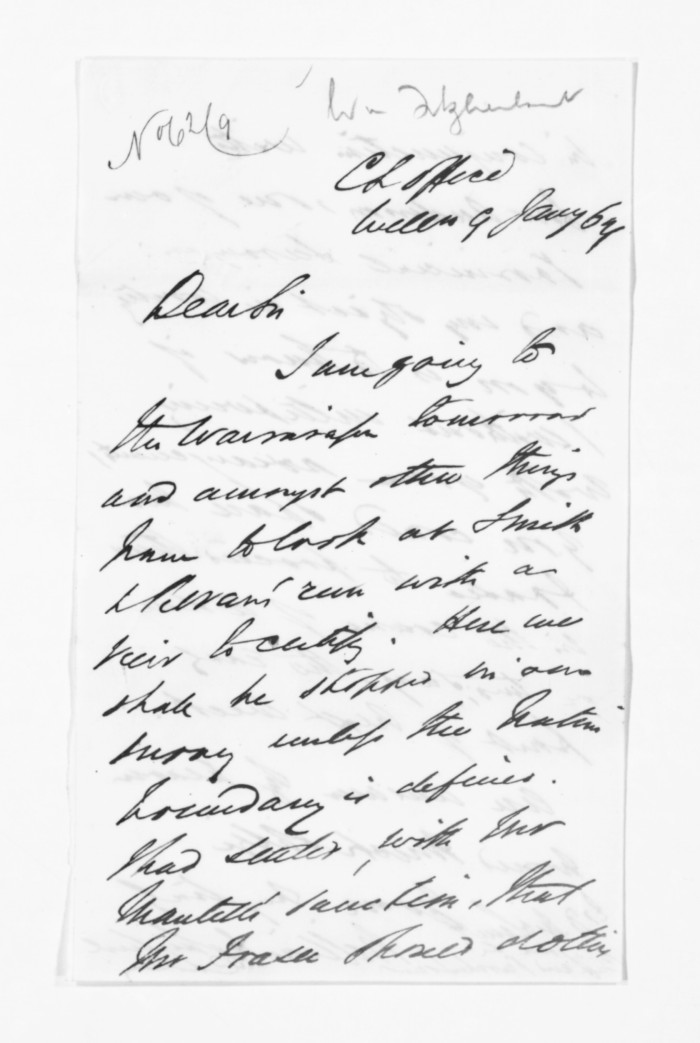 No 62/9
Wm Fitzherbert
C L Office
Welln 9 Jany 64
Dear Sir
I am going to
the Wairarapa tomorrow
and amongst other things
have to look at Smith
& Revans' run with a
view to certify. Here we
shall be stopped in our
survey unless the Native
boundary is defined.
I had settled, with Mr
Mantell's sanction, that
Mr Fraser should do this